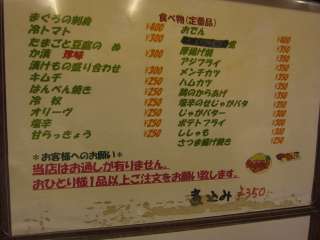 まぐろの刺身 ¥400
冷トマト ¥300
たまごと豆腐の
か漬 珍味 ¥300
漬けもの盛り合わせ ¥300
キムチ ¥250
はんぺん焼き ¥250
冷 奴 ¥250
オリーヴ ¥250
塩辛 ¥250
甘らっきょう ¥250
食べ物(定番品)
おでん
厚揚げ焼
アジフライ
メンチカツ
ハムカツ
鶏のからあげ
塩辛のせじゃがバタ
じゃがバター
ポテトフライ
ししゃも
さつま揚げ焼き
*お客様へのお願い*
当店はお通しが有りません。
おひとり様1品以上ご注文をお願い致します。
煮込み ¥350